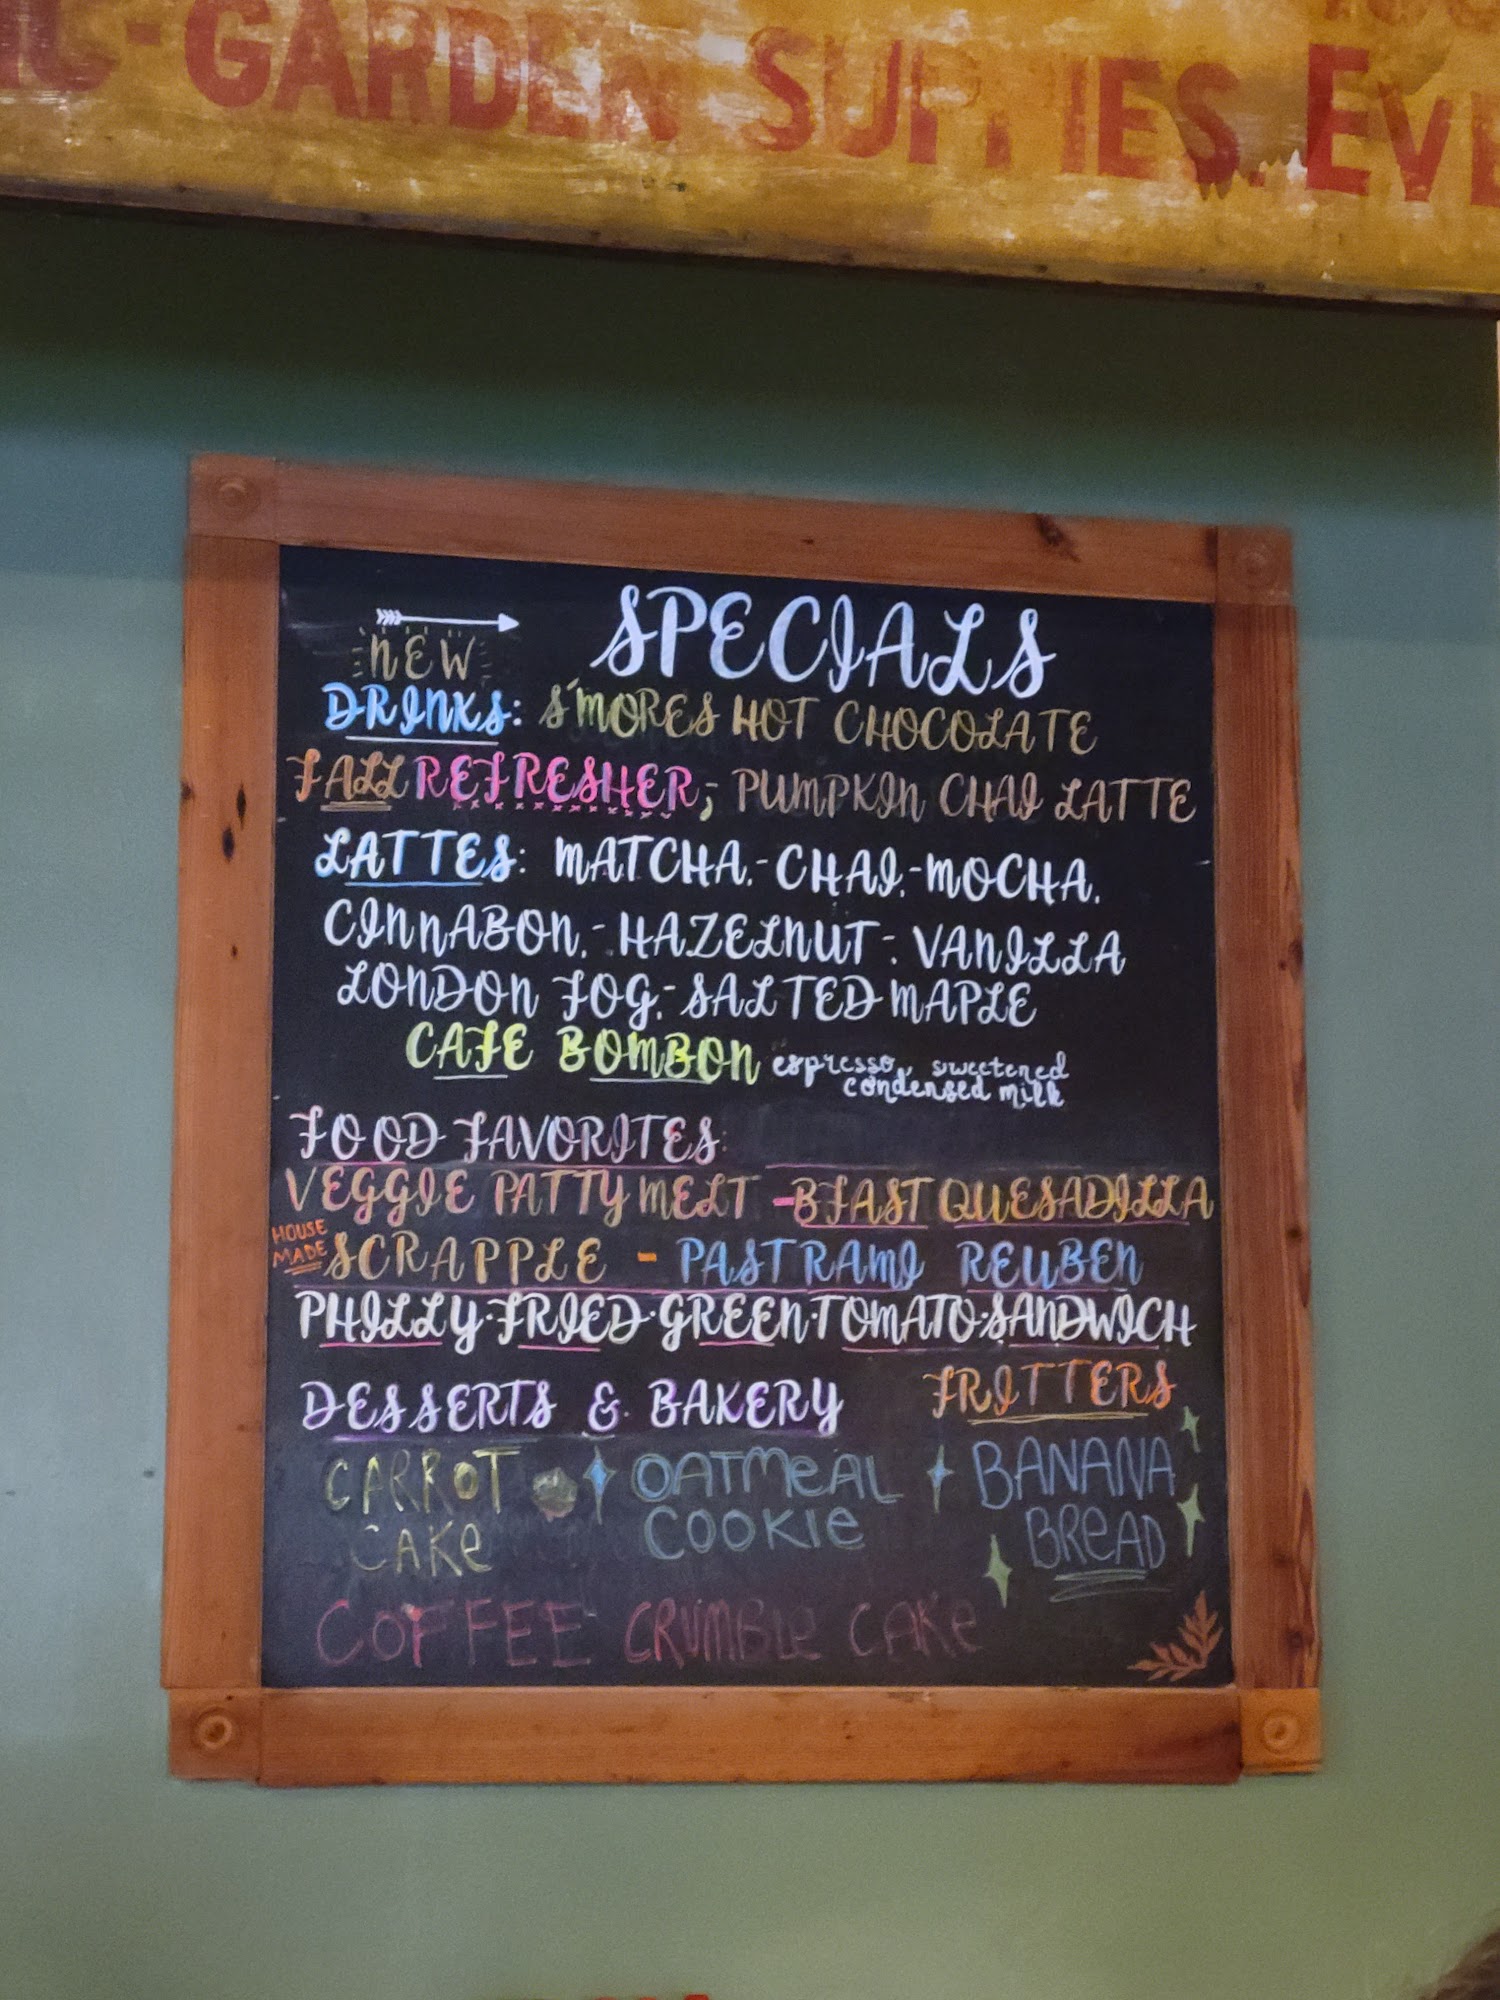 GARDEN SUPPLIES. EVE
SPECIALS
NEW
DRINKS: S'MORES HOT CHOCOLATE
FALL REFRESHER; - PUMPKIN CHAI LATTE
LATTES: MATCHA, - CHAI, - MOCHA,
CINNABON, - HAZELNUT - VANILLA
LONDON FOG, - SALTED MAPLE
CAFE BOMBON espresso, sweetened
condensed milk
FOOD FAVORITES:
VEGGIE PATTY MELT - BFAST QUESADILLA
HOUSE
MADE SCRAPPLE - PASTRAMI REUBEN
PHILLY·FRIED·GREEN·TOMATO·SANDWICH
DESSERTS & BAKERY FRITTERS
CARROT OATMEAL BANANA
CAKE COOKIE BREAD
COFFEE CRUMBLE CAKE